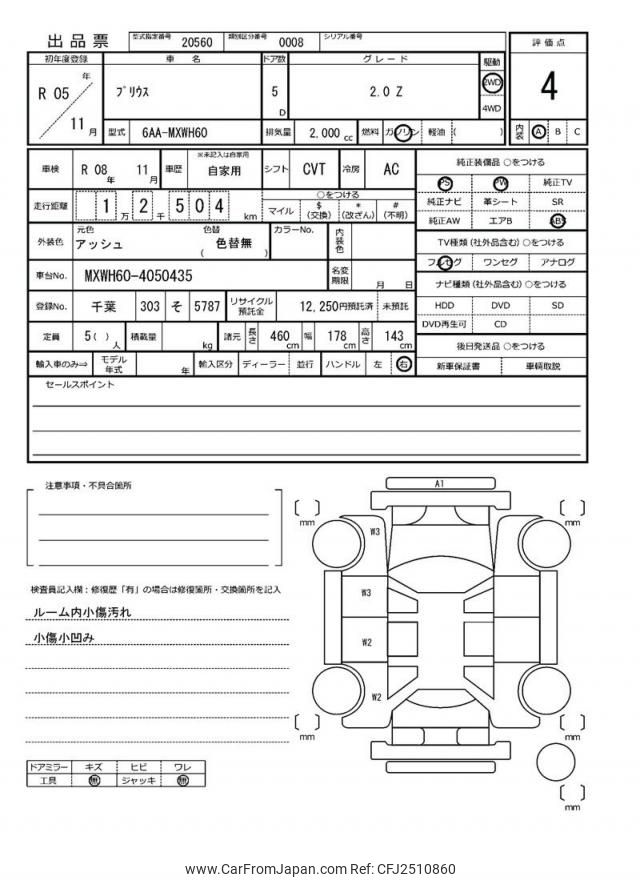 出品票
型式指定番号 20560 類別区分番号 0008 シリアル番号
評価点
4
内装 A B C
初年度登録 車名 ドア数 グレード 駆動
R 05 年 11 月
プリウス
5 D
2.0 Z
2WD
4WD
型式 6AA-MXWH60 排気量 2,000 cc 燃料 ガソリン 軽油 ( )
車検 R 08 年 11 月 車歴 ※未記入は自家用 自家用 シフト CVT 冷房 AC
走行距離 1 万 2 千 5 0 4 km
○をつける
マイル $ (交換) * (改ざん) # (不明)
外装色 元色 アッシュ 色替 ( 色替無 ) カラーNo. 内装色
車台No. MXWH60-4050435 名変期限 月 日
登録No. 千葉 303 そ 5787 リサイクル預託金 12,250円預託済 未預託
定員 5 ( ) 人 積載量 kg 諸元 長さ 460 cm 幅 178 cm 高さ 143 cm
輸入車のみ⇒ モデル年式 年 輸入区分 ディーラー 並行 ハンドル 左 右
純正装備品 ○をつける
PS PW 純正TV
純正ナビ 革シート SR
純正AW エアB ABS
TV種類 (社外品含む) ○をつける
フルセグ ワンセグ アナログ
ナビ種類 (社外品含む) ○をつける
HDD DVD SD
DVD再生可 CD
後日発送品 ○をつける
新車保証書 車輌取説
セールスポイント
注意事項・不具合箇所
検査員記入欄：修復歴「有」の場合は修復箇所・交換箇所を記入
ルーム内小傷汚れ
小傷小凹み
ドアミラー キズ ヒビ ワレ
工具 無 ジャッキ 無
A1
W3
W3
W2
W2
mm
mm
mm
mm
mm
www.CarFromJapan.com Ref: CFJ2510860